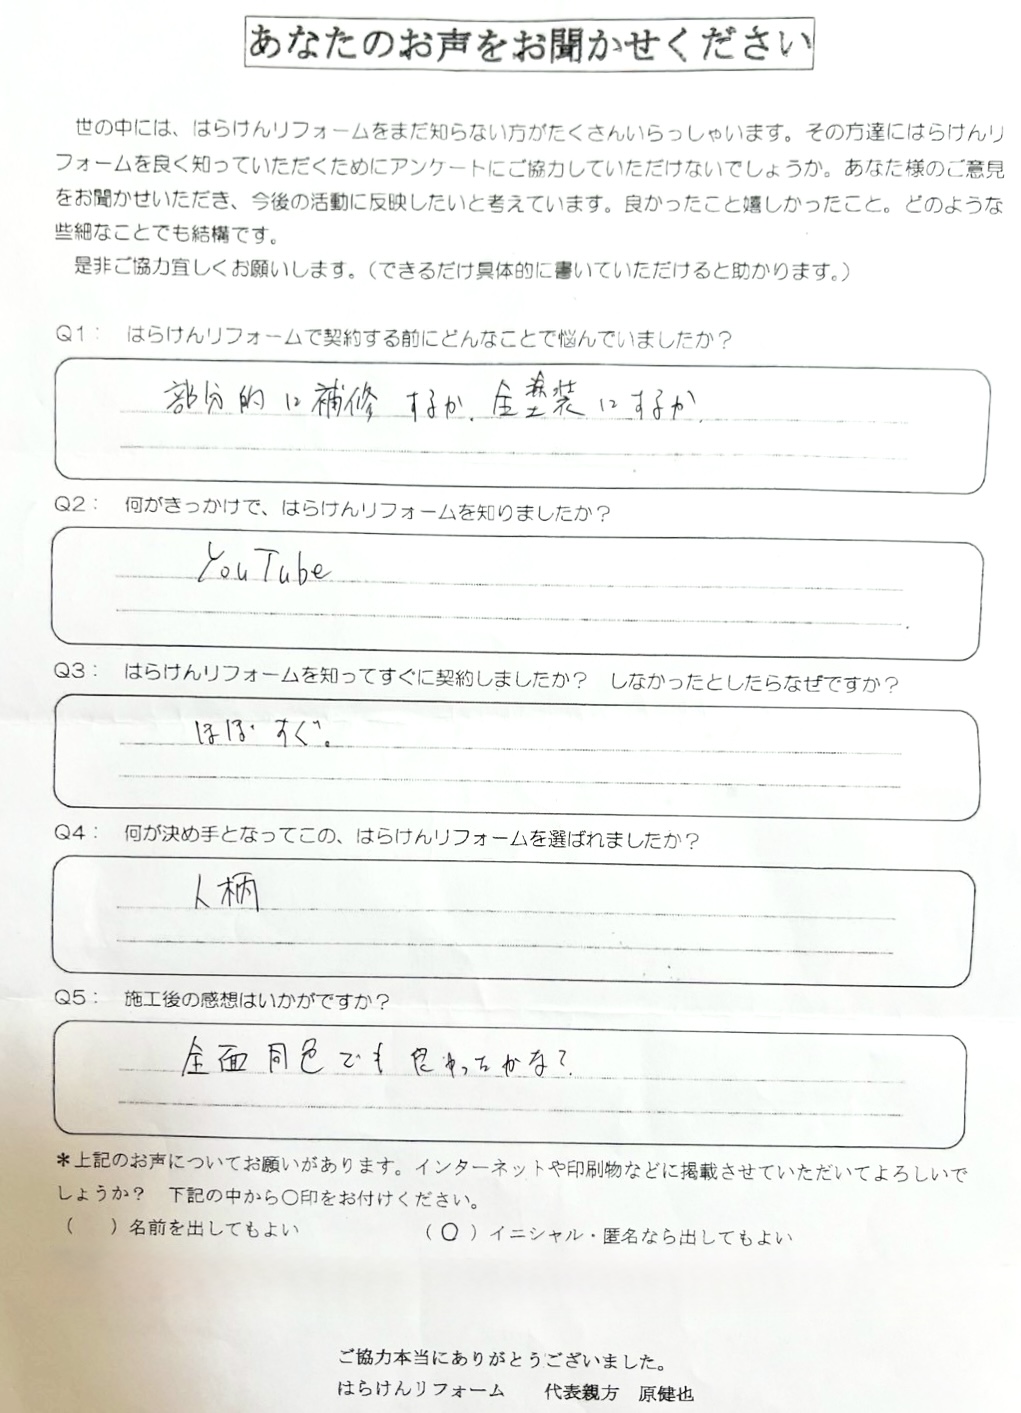 あなたのお声をお聞かせください
世の中には、はらけんリフォームをまだ知らない方がたくさんいらっしゃいます。その方達にはらけんリ
フォームを良く知っていただくためにアンケートにご協力していただけないでしょうか。あなた様のご意見
をお聞かせいただき、今後の活動に反映したいと考えています。良かったこと嬉しかったこと。どのような
些細なことでも結構です。
是非ご協力宜しくお願いします。（できるだけ具体的に書いていただけると助かります。）
Q1： はらけんリフォームで契約する前にどんなことで悩んでいましたか？
部分的に補修するか、全塗装にするか、
Q2： 何がきっかけで、はらけんリフォームを知りましたか？
YouTube
Q3： はらけんリフォームを知ってすぐに契約しましたか？ しなかったとしたらなぜですか？
ほぼすぐ。
Q4： 何が決め手となってこの、はらけんリフォームを選ばれましたか？
人柄
Q5： 施工後の感想はいかがですか？
全面同色でも良かったかな？
＊上記のお声についてお願いがあります。インターネットや印刷物などに掲載させていただいてよろしいで
しょうか？ 下記の中から〇印をお付けください。
（ ）名前を出してもよい （〇）イニシャル・匿名なら出してもよい
ご協力本当にありがとうございました。
はらけんリフォーム 代表親方 原健也